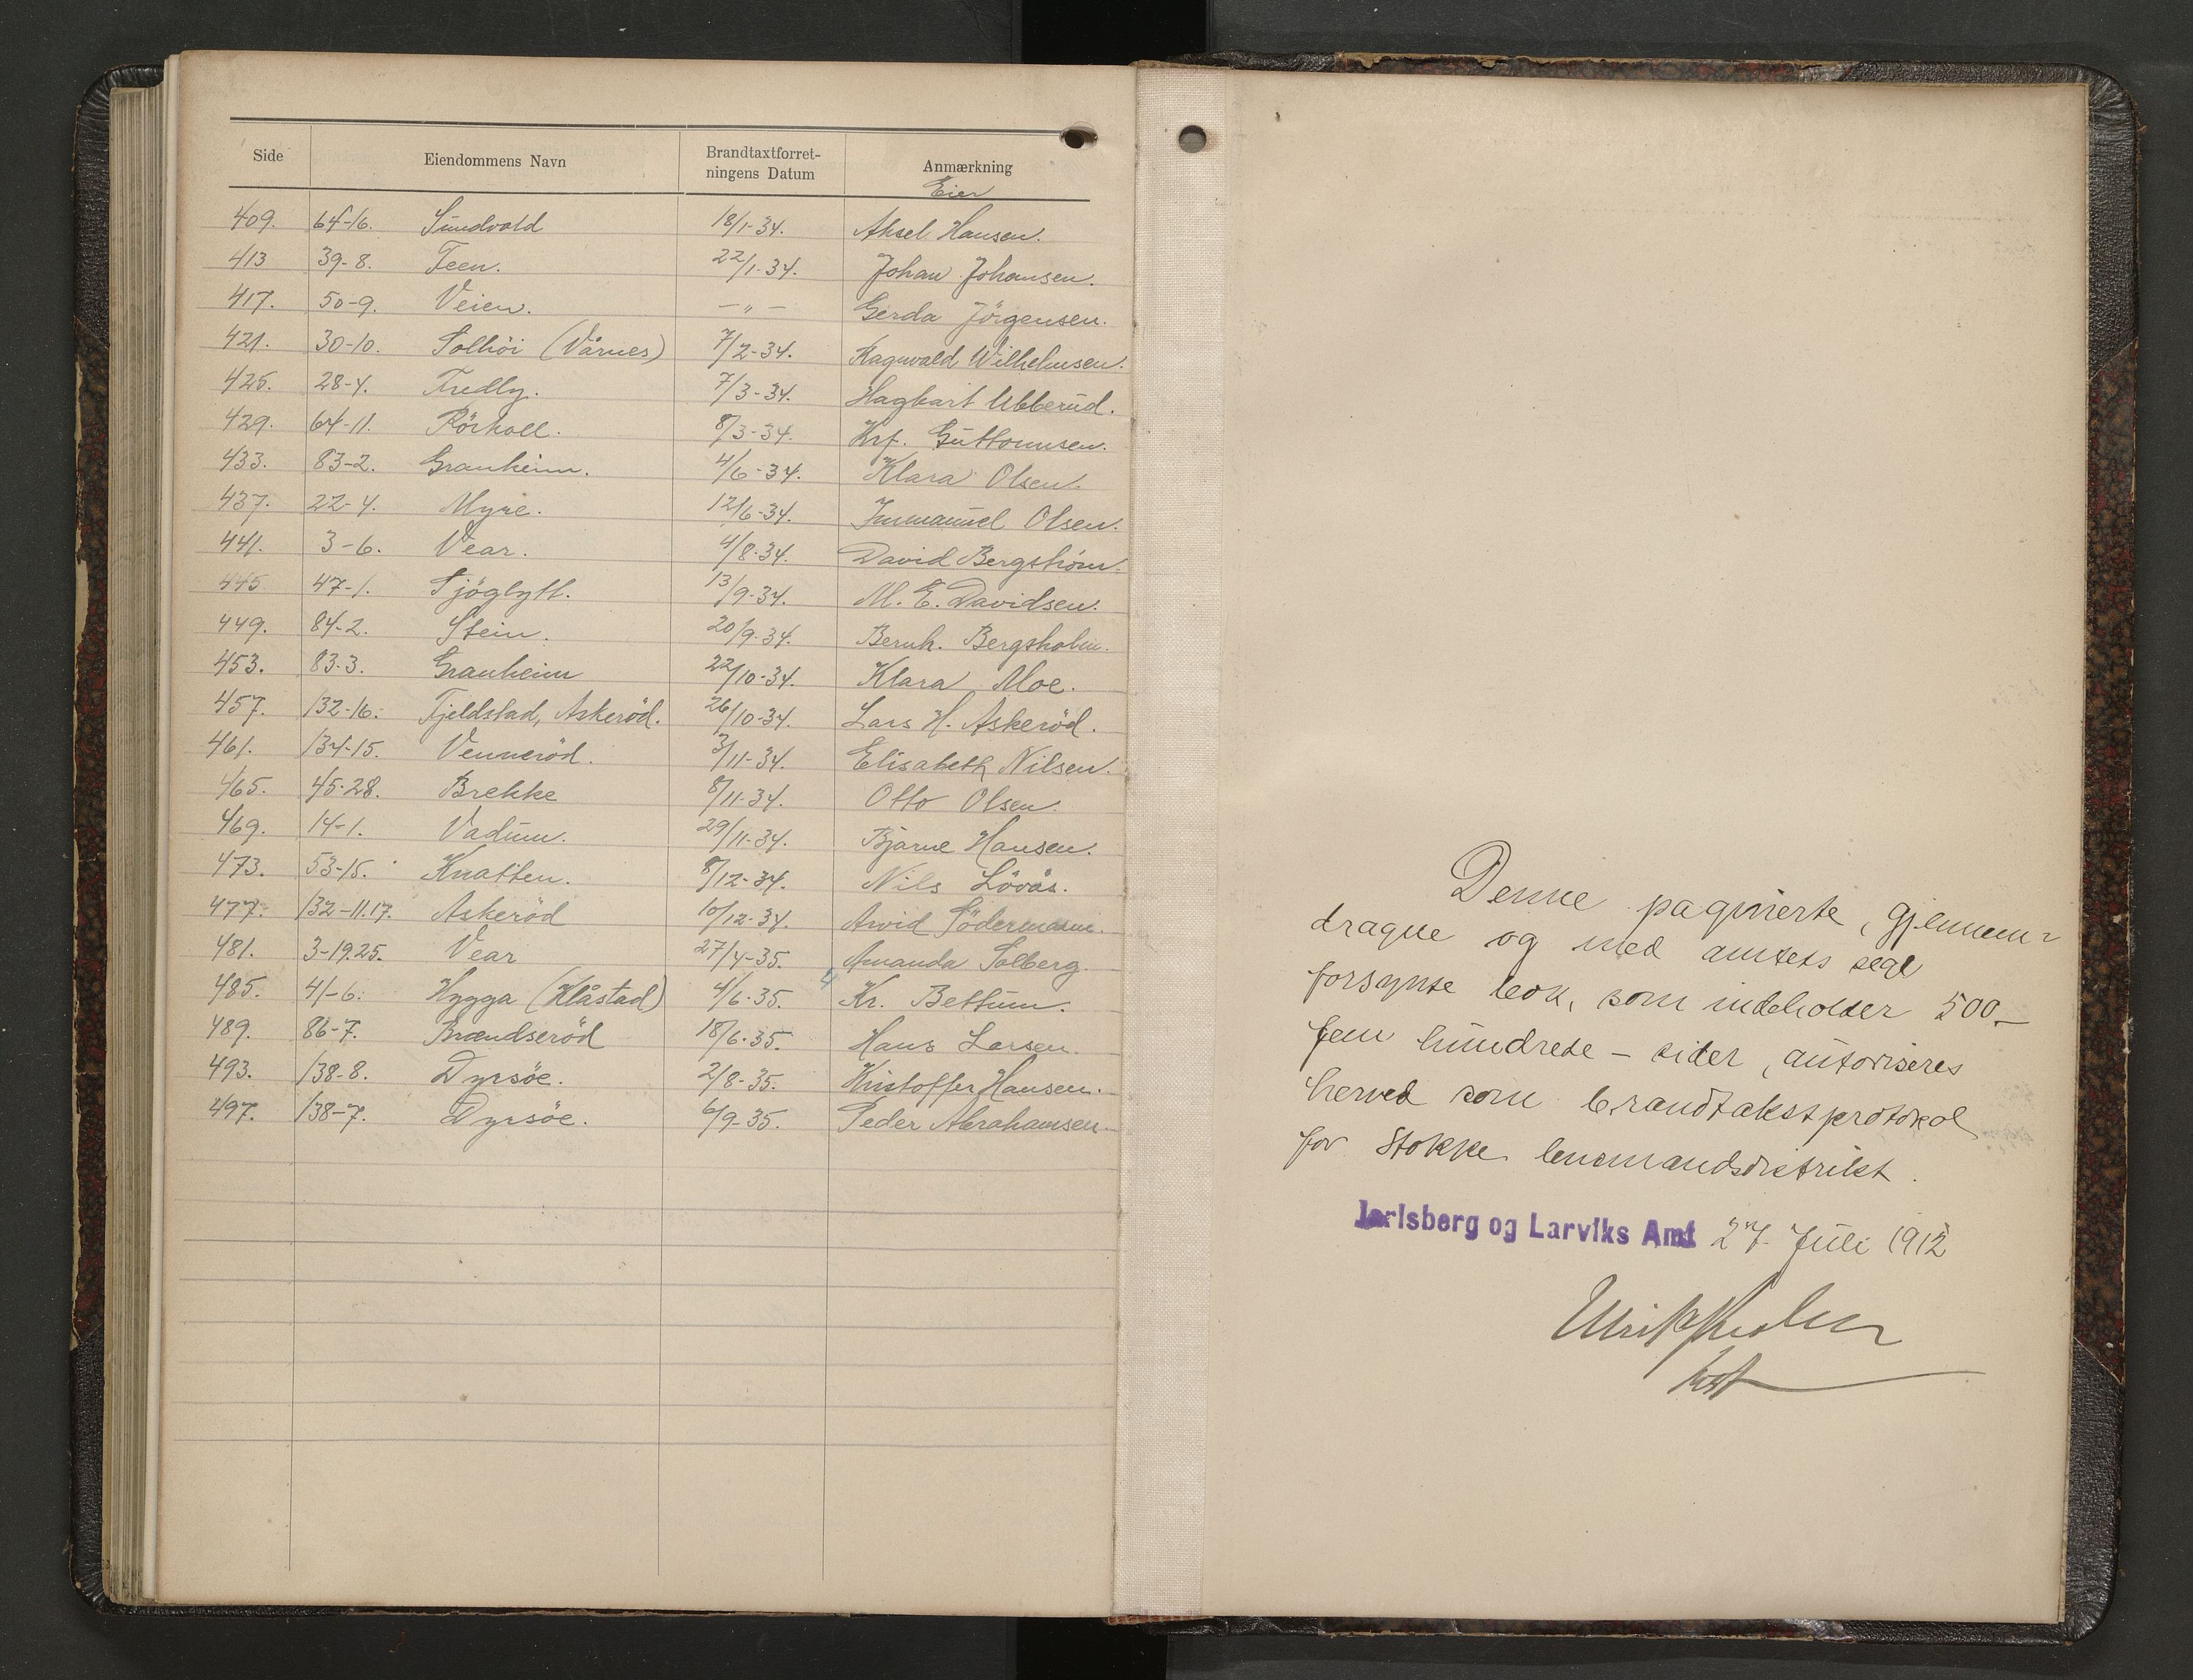 Side Eiendommens Navn Brandtaxtforret-ningens Datum Anmærkning
Eier
409. 64-16. Sundvold 18/1-34. Aksel Hansen.
413 39-8. Teen. 22/1-34. Johan Johansen.
417. 50-9. Veien. — " — Gerda Jörgensen.
421. 30-10. Solhöi (Vårnes) 7/2-34. Ragnvald Wilhelmsen.
425. 28-4. Fredly. 7/3-34. Hagbart Ubberud.
429. 64-11. Rörkoll. 8/3-34. Krf. Guttormsen.
433. 83-2. Granheim. 4/6-34. Klara Olsen.
437. 22-4. Myre. 12/6-34. Immanuel Olsen.
441. 3-6. Vear. 4/8-34. David Bergström.
445 47-1. Sjöglytt. 13/9-34. M. E. Davidsen.
449. 84-2. Stein. 20/9-34. Bernh. Bergsholm.
453. 83-3. Granheim 22/10-34. Klara Moe.
457. 132-16. Fjeldstad, Askeröd. 26/10-34. Lars H. Askeröd.
461. 134-15. Venneröd. 3/11-34. Elisabeth Nilsen.
465. 45-28. Brekke 8/11-34. Otto Olsen.
469. 14-1. Vadum. 29/11-34. Bjarne Hansen.
473. 53-15. Knatten. 8/12-34. Nils Lövås.
477. 132-11.17. Askeröd 10/12-34. Arvid Södermann.
481. 3-19.25. Vear 27/4-35. Amanda Solberg.
485. 41-6. Hygga (Klåstad) 4/6-35. Kr. Bettum.
489. 86-7. Brændseröd 18/6-35. Hans Larsen.
493. 138-8. Dyrsöe. 2/8-35. Kristoffer Hansen.
497. 138-7. Dyrsöe. 6/9-35. Peder Abrahamsen.
Denne paginerte, gjennem-
dragne og med amtets segl
forsynte bok, som indeholder 500-
fem hundrede - sider, autoriseres
herved som brandtakstprotokol
for Stokke lensmandsdistrikt.
Jarlsberg og Larviks Amt 27 Juli 1912